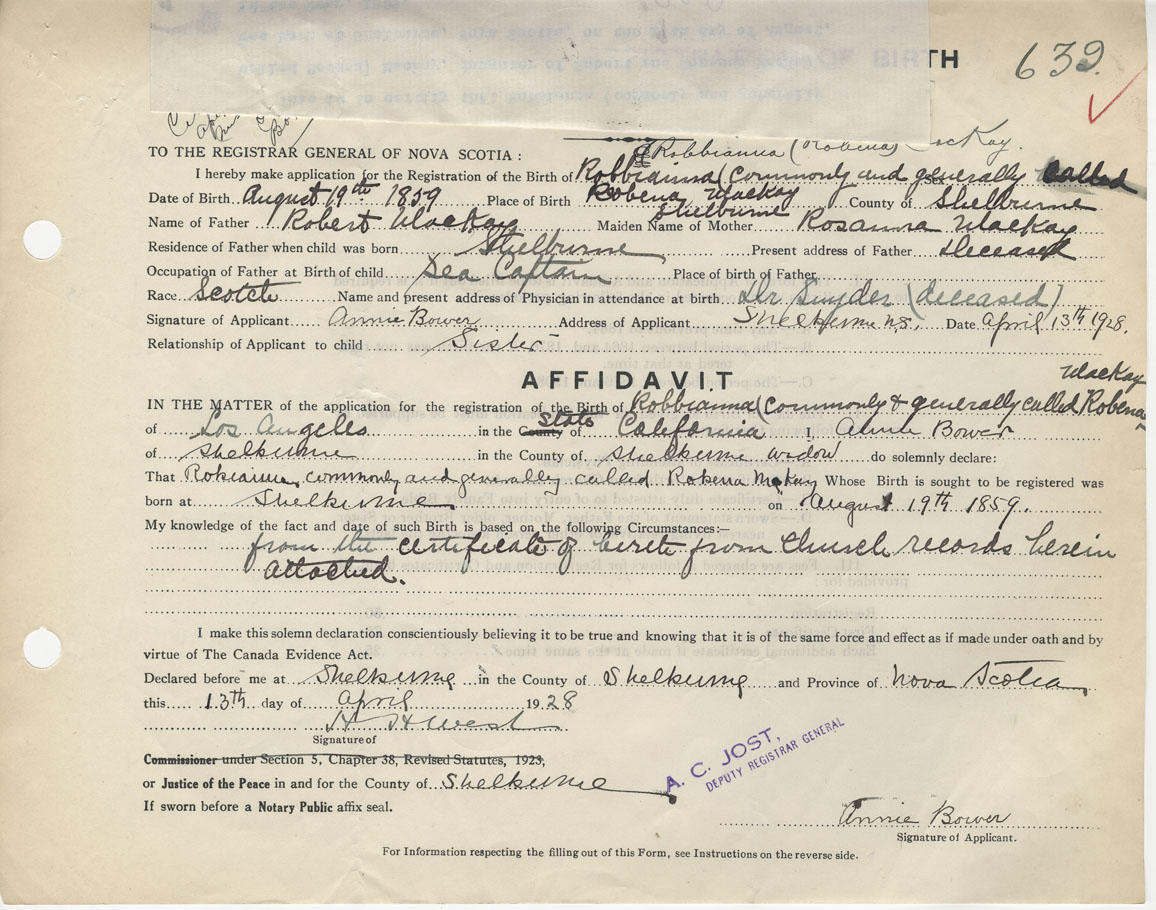 OF BIRTH
639.
Robbianna (Robena) MacKay.
TO THE REGISTRAR GENERAL OF NOVA SCOTIA :
I hereby make application for the Registration of the Birth of Robbianna (commonly and generally called
Sex
Date of Birth August 19th 1859 Place of Birth Robena MacKay County of Shelburne
Shelburne
Name of Father Robert MacKay Maiden Name of Mother Rosanna MacKay
Residence of Father when child was born Shelburne Present address of Father Deceased
Occupation of Father at Birth of child Sea Captain Place of birth of Father
Race Scotch Name and present address of Physician in attendance at birth Dr Snyder (deceased)
Signature of Applicant Annie Bower Address of Applicant Shelburne N.S. Date April 13th 1928.
Relationship of Applicant to child Sister
AFFIDAVIT
MacKay
IN THE MATTER of the application for the registration of the Birth of Robbianna (commonly & generally called Robena
of Los Angeles in the County State of California I, Annie Bower
of Shelburne in the County of Shelburne widow do solemnly declare:
That Robianna, commonly and generally called Robena McKay Whose Birth is sought to be registered was
born at Shelburne on August 19th 1859.
My knowledge of the fact and date of such Birth is based on the following Circumstances:—
from the certificate of birth from Church records herein
attached.
I make this solemn declaration conscientiously believing it to be true and knowing that it is of the same force and effect as if made under oath and by
virtue of The Canada Evidence Act.
Declared before me at Shelburne in the County of Shelburne and Province of Nova Scotia
this 13th day of April 1928
H H West
Signature of
Commissioner under Section 5, Chapter 38, Revised Statutes, 1923,
or Justice of the Peace in and for the County of Shelburne
If sworn before a Notary Public affix seal.
A. C. JOST,
DEPUTY REGISTRAR GENERAL
Annie Bower
Signature of Applicant.
For Information respecting the filling out of this Form, see Instructions on the reverse side.